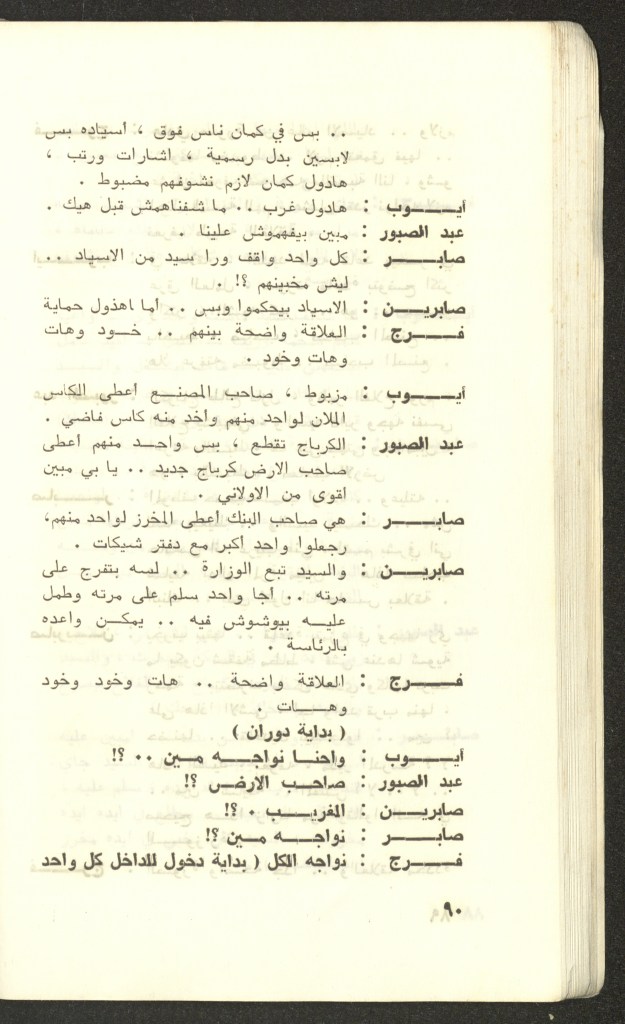 .. بس في كمان ناس فوق ، أسياده بس
لابسين بدل رسمية ، اشارات ورتب ،
هادول كمان لازم نشوفهم مضبوط .
أيـــوب : هادول غرب .. ما شفناهمش قبل هيك .
عبد الصبور : مبين بيفهموش علينا ..
صابـــر : كل واحد واقف ورا سيد من الاسياد ..
ليش مخبينهم ؟! .
صابريــن : الاسياد بيحكموا وبس .. أما اهذول حماية
فـــرج : العلاقة واضحة بينهم .. خــود وهات
وهات وخود .
أيـــوب : مزبوط ، صاحب المصنــع أعطى الكاس
الملان لواحد منهم واخد منه كاس فاضي .
عبد الصبور : الكرباج تقطع ، بس واحــد منهم أعطى
صاحب الارض كرباج جديد .. يا بي مبين
اقوى من الاولاني .
صابـــر : هي صاحب البنك أعطى المخرز لواحد منهم،
رجعلوا واحد أكبر مع دفتر شيكات .
صابريــن : والسيد تبع الوزارة .. لسه بتفرج على
مرته .. أجا واحد سلم على مرته وطمل
عليــه بيوشوش فيه .. يمكــن واعده
بالرئاسة .
فـــرج : العلاقة واضحة .. هات وخود وخود
وهــات .
( بداية دوران )
أيـــوب : واحنــا نواجــه مــين .. ؟!
عبد الصبور : صاحــب الارض ؟!
صابريــن : الغريــب . ؟!
صابـــر : نواجــه مــين ؟!
فـــرج : نواجه الكل ( بداية دخول للداخل كل واحد
٩٠